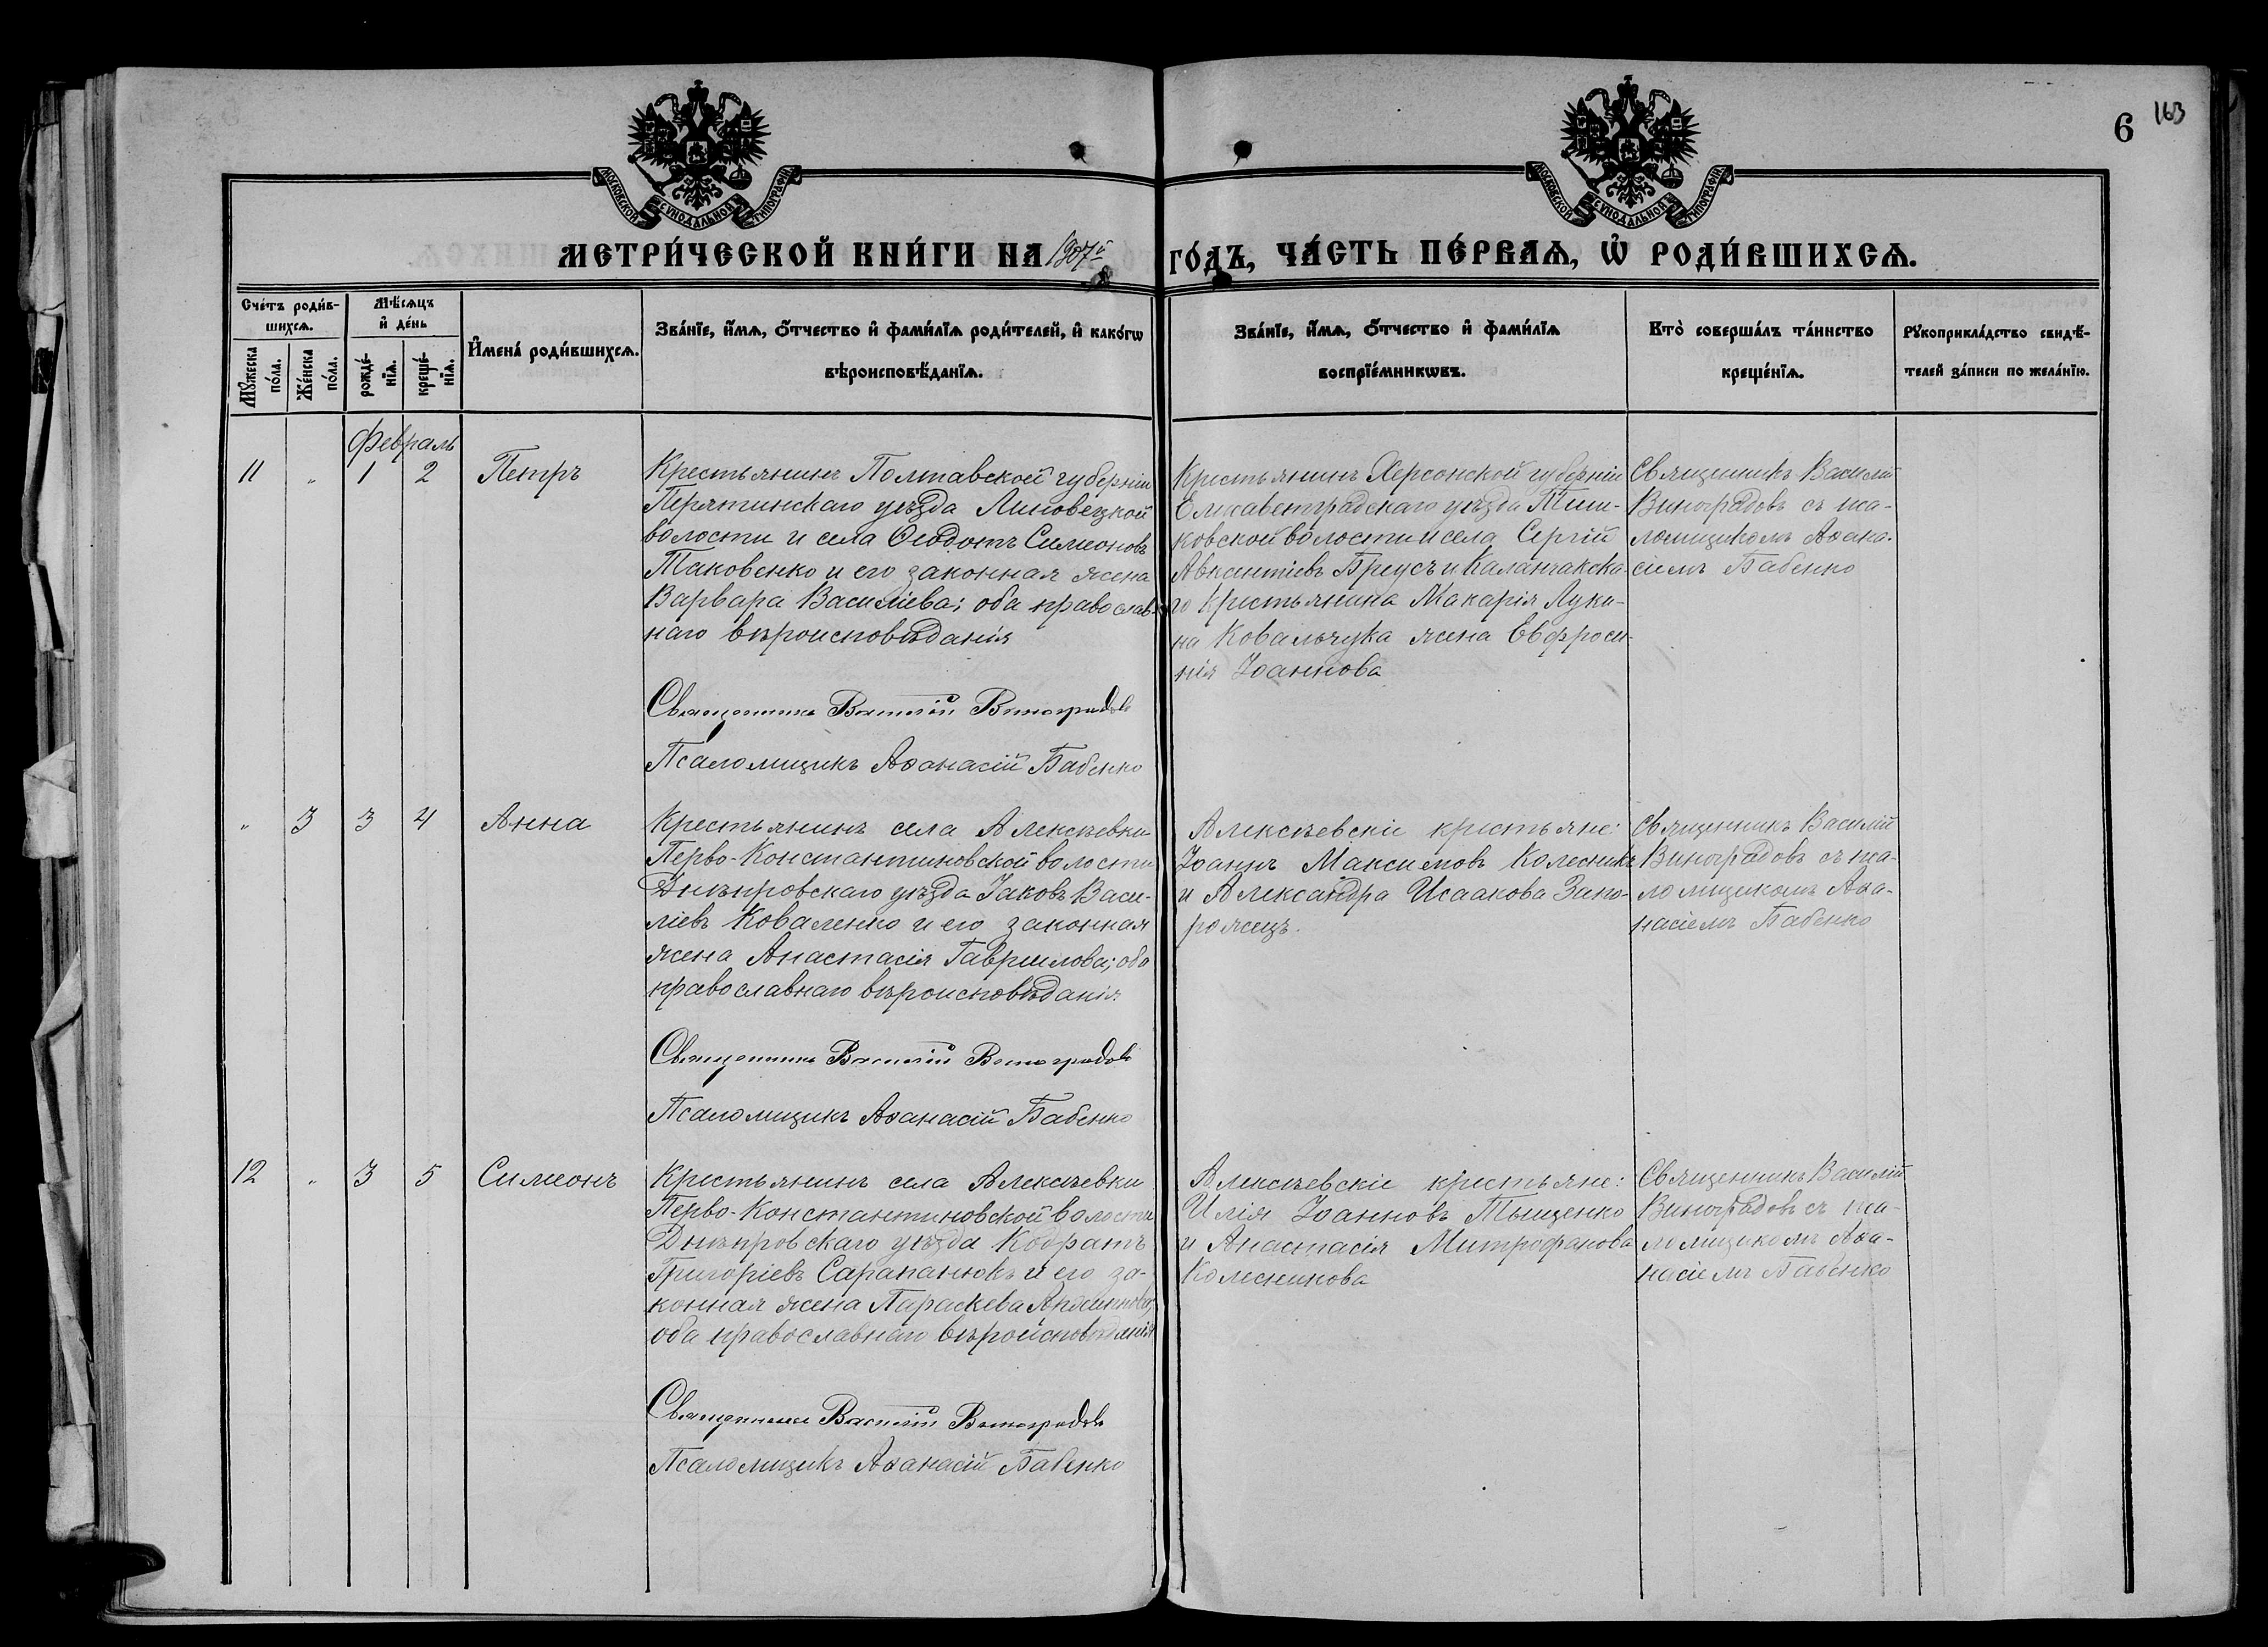 6 163
МОСКОВСКОЙ СѴНОДАЛЬНОЙ ТИПОГРАФІИ
МОСКОВСКОЙ СѴНОДАЛЬНОЙ ТИПОГРАФІИ
МЕТРИ́ЧЕСКОЙ КНИ́ГИ НА 1907й ГО́ДЪ, ЧА́СТЬ ПЕ́РВАѦ, Ѡ҆ РОДИ́ВШИХСѦ.
Сче́тъ роди́в-
шихсѧ.
Мꙋ́жеска по́ла.
Же́нска по́ла.
Мѣ́сѧцъ
и҆ де́нь
рожде́-
нїѧ.
креще́-
нїѧ.
И҆мена̀ роди́вшихсѧ.
Зва́нїе, и҆́мѧ, ѻ҆́тчество и҆ фами́лїѧ роди́телей, и҆ како́гѡ
вѣроисповѣ́данїѧ.
Зва́нїе, и҆́мѧ, ѻ҆́тчество и҆ фами́лїѧ
воспрїе́мникѡвъ.
Кто̀ соверша́лъ та́инство
креще́нїѧ.
Рꙋкоприкла́дство свидѣ́-
телей за́писи по жела́нїю.
Февраль
11 " 1 2 Петръ
Крестьянинъ Полтавской губерніи
Пирятинскаго уѣзда Линовецкой
волости и села Ѳеодотъ Симеоновъ
Таковенко и его законная жена
Варвара Василіева; оба православ-
наго вѣроисповѣданія
Священникъ Василій Виноградовъ
Псаломщикъ Аѳанасій Бабенко
Крестьянинъ Херсонской губерніи
Елисаветградскаго уѣзда Тиш-
ковской волости и села Сергій
Авксентіевъ Бреусъ и Каланчакска-
го крестьянина Макарія Луки-
на Ковальчука жена Евфроси-
нія Іоаннова
Священникъ Василій
Виноградовъ съ пса-
ломщикомъ Аѳана-
сіемъ Бабенко
" 3 3 4 Анна
Крестьянинъ села Алексѣевки
Перво-Константиновской волости
Днѣпровскаго уѣзда Іаковъ Васи-
ліевъ Коваленко и его законная
жена Анастасія Гавриилова; оба
православнаго вѣроисповѣданія.
Священникъ Василій Виноградовъ
Псаломщикъ Аѳанасій Бабенко
Алексѣевскіе крестьяне:
Іоаннъ Максимовъ Колесникъ
и Александра Исаакова Запо-
рожецъ.
Священникъ Василій
Виноградовъ съ пса-
ломщикомъ Аѳа-
насіемъ Бабенко
12 " 3 5 Симеонъ
Крестьянинъ села Алексѣевки
Перво-Константиновской волости
Днѣпровскаго уѣзда Кодратъ
Григоріевъ Сарапанюкъ и его за-
конная жена Параскева
оба православнаго вѣроисповѣданія
Священникъ Василій Виноградовъ
Псаломщикъ Аѳанасій Бабенко
Алексѣевскіе крестьяне:
Илія Іоанновъ Тыщенко
и Анастасія Митрофанова
Колесникова
Священникъ Василій
Виноградовъ съ пса-
ломщикомъ Аѳа-
насіемъ Бабенко